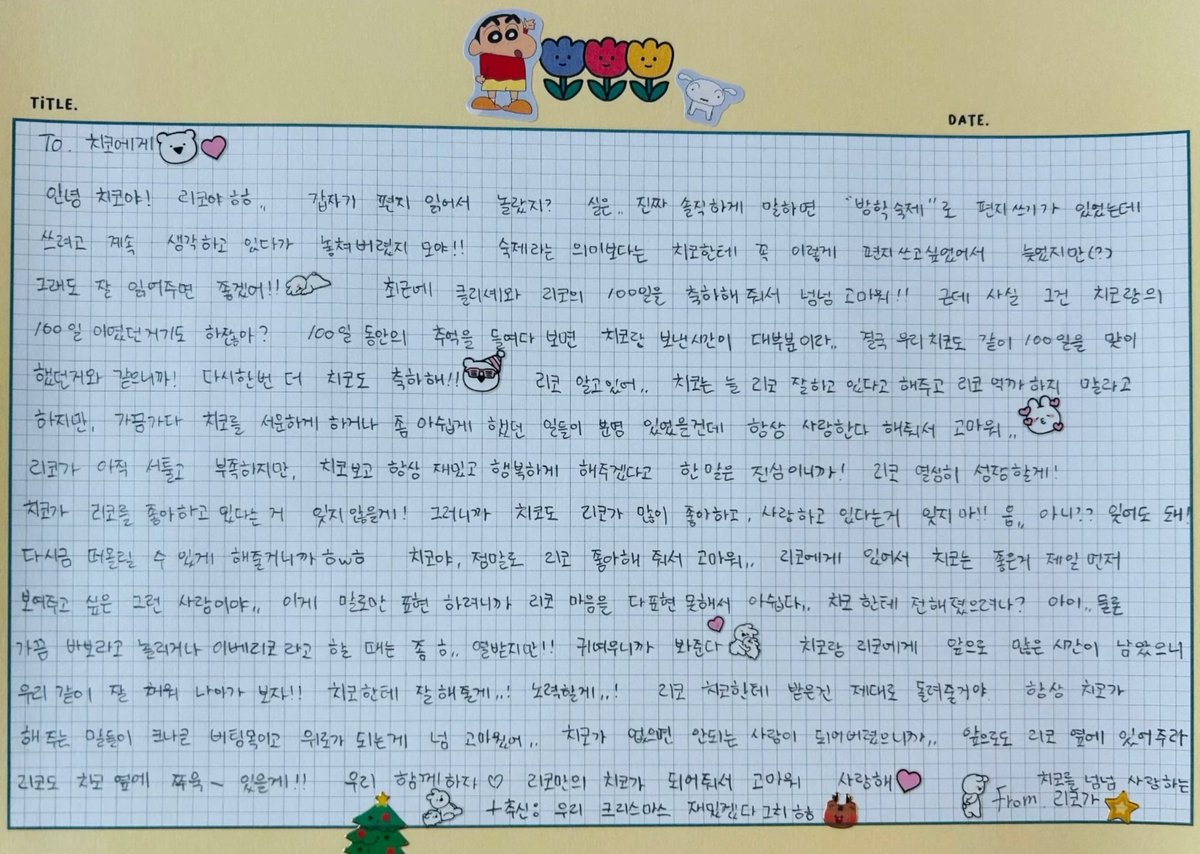 TITLE.
DATE.
To. 치코에게
안녕 치코야! 리코야ㅎㅎ,, 갑자기 편지 읽어서 놀랐지? 실은.. 진짜 솔직하게 말하면 "방학숙제"로 편지쓰기가 있었는데
쓰려고 계속 생각하고 있다가 놓쳐버렸지 모야!! 숙제라는 의미보다는 치코한테 꼭 이렇게 편지쓰고싶었어서 늦었지만(?)
그래도 잘 읽어주면 좋겠어!! 최근에 클리셰와 리코의 100일을 축하해줘서 넘넘 고마워!! 근데 사실 그건 치코랑의
100일 이였던거기도 하잖아? 100일 동안의 추억을 들여다 보면 치코랑 보낸시간이 대부분이라.. 결국 우리치코도 같이 100일을 맞이
했던거와 같으니까! 다시한번 더 치코도 축하해!! 리코 알고있어,, 치코는 늘 리코 잘하고 있다고 해주고 리코 억까하지 말라고
하지만, 가끔가다 치코를 서운하게 하거나 좀 아쉽게 했던 일들이 분명 있었을건데 항상 사랑한다 해줘서 고마워,,
리코가 아직 서툴고 부족하지만, 치코보고 항상 재밌고 행복하게 해주겠다고 한말은 진심이니까! 리코 열심히 성장할게!
치코가 리코를 좋아하고 있다는 거 잊지않을게! 그러니까 치코도 리코가 많이 좋아하고, 사랑하고 있다는거 잊지마!! 음,, 아니?? 잊어도 돼!
다시금 떠올릴 수 있게 해줄거니까 ㅎwㅎ 치코야, 정말로 리코 좋아해 줘서 고마워,, 리코에게 있어서 치코는 좋은거 제일 먼저
보여주고 싶은 그런 사람이야,, 이게 말로만 표현 하려니까 리코 마음을 다표현 못해서 아쉽다,, 치코한테 전해졌으려나? 아이,,
가끔 바보라고 놀리거나 이베리코라고 할 때는 좀 ㅎ,, 열받지만!! 귀여우니까 봐준다 치코랑 리코에게 앞으로 많은 시간이 남았으니
우리 같이 잘 채워 나아가 보자!! 치코한테 잘해줄게,,! 노력할게,,! 리코 치코한테 받은건 제대로 돌려줄거야 항상 치코가
해주는 말들이 크나큰 버팀목이고 위로가 되는게 넘 고마웠어,, 치코가 없으면 안되는 사람이 되어버렸으니까,, 앞으로도 리코 옆에 있어주라
리코도 치코 옆에 쭈욱~ 있을게!! 우리 함께하자♡ 리코만의 치코가 되어줘서 고마워 사랑해 치코를 넘넘 사랑하는
From. 리코가
+추신: 우리 크리스마스 재밌겠다 그치 ㅎㅎ